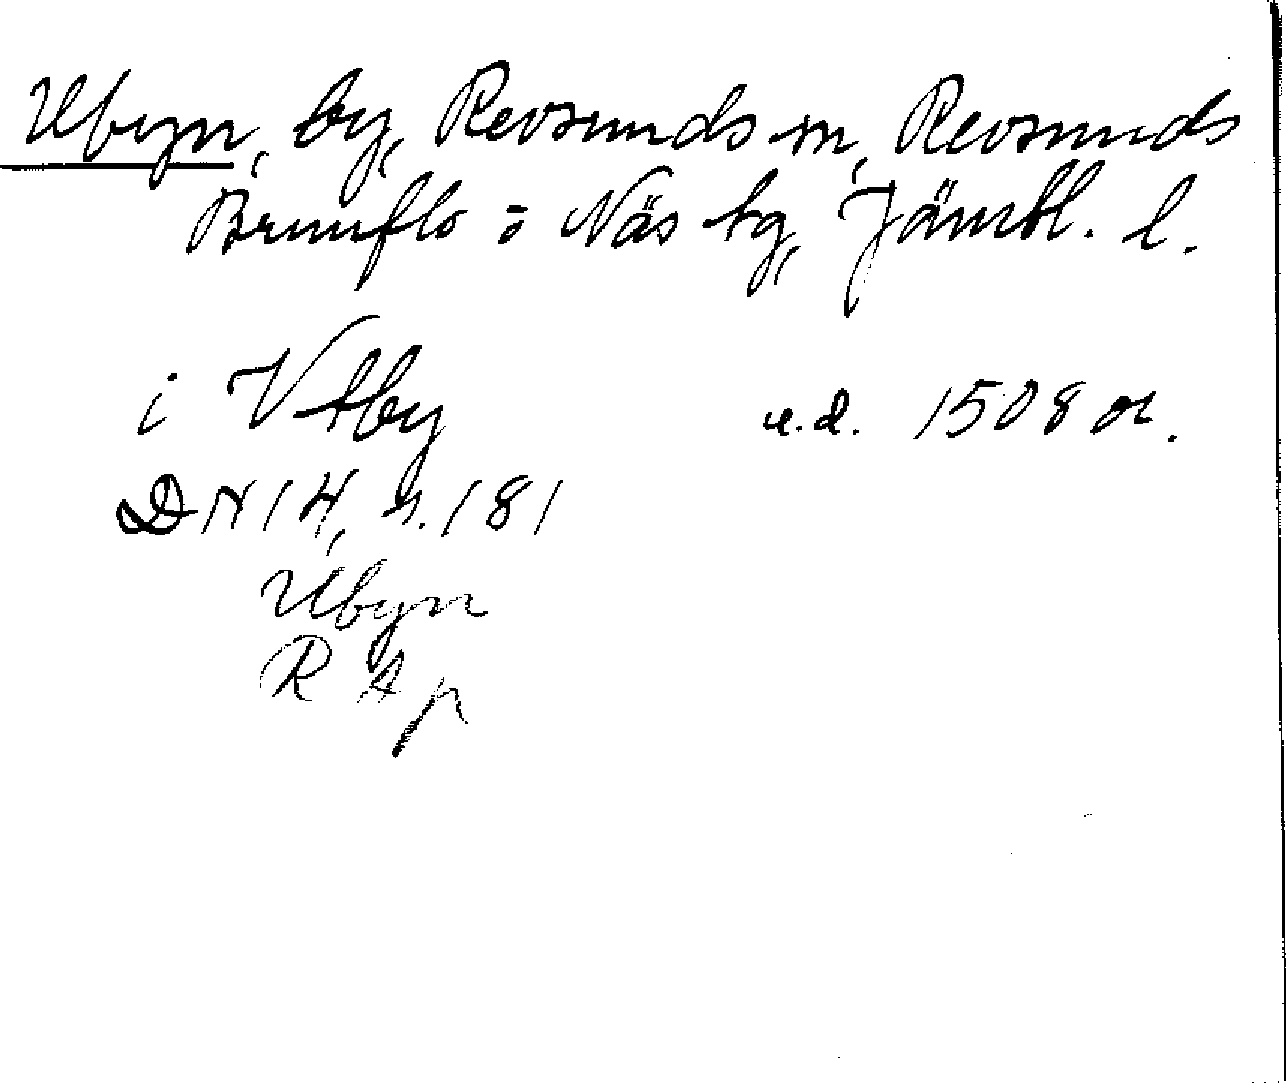 Ubyn, by, Revsunds sn, Revsunds
Brunflo o Näs tg, Jämtl. l.
i Vtby u.d. 1508 or.
DN 14, s. 181
Ubyn
R